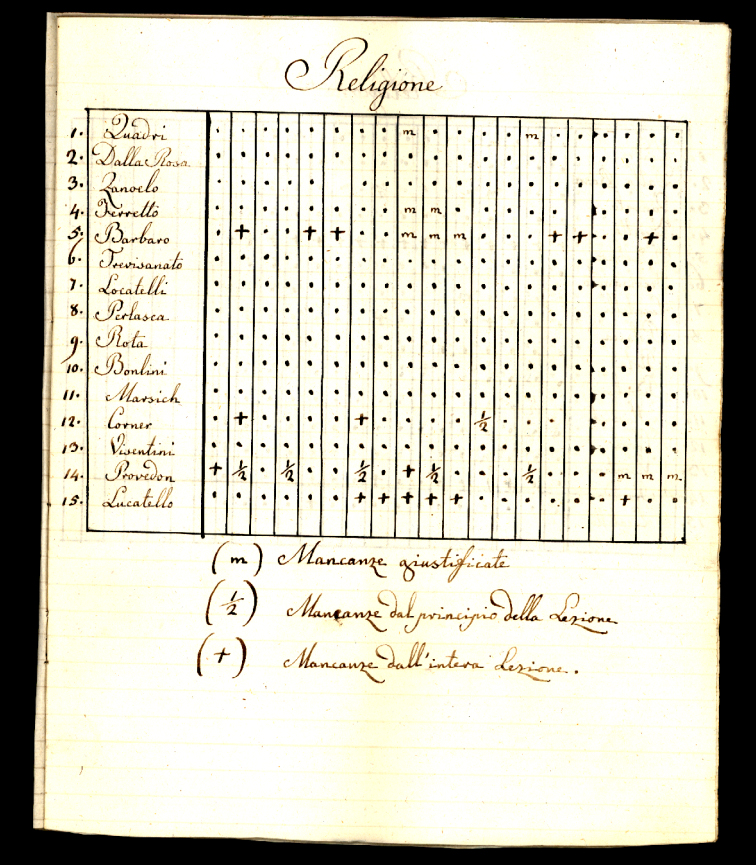 Religione
1. Quadri m m
2. Dalla Rosa
3. Zanoelo
4. Ferretto m m
5. Barbaro + + + m m m + + +
6. Trevisanato
7. Locatelli
8. Perlasca
9. Rota
10. Bonlini
11. Marsich
12. Corner + + ½
13. Visentini
14. Provedon + ½ ½ ½ + ½ ½ m m m
15. Lucatello + + + + + +
(m) Mancanze giustificate
(½) Mancanze dal principio della Lezione
(+) Mancanze dall'intera Lezione.